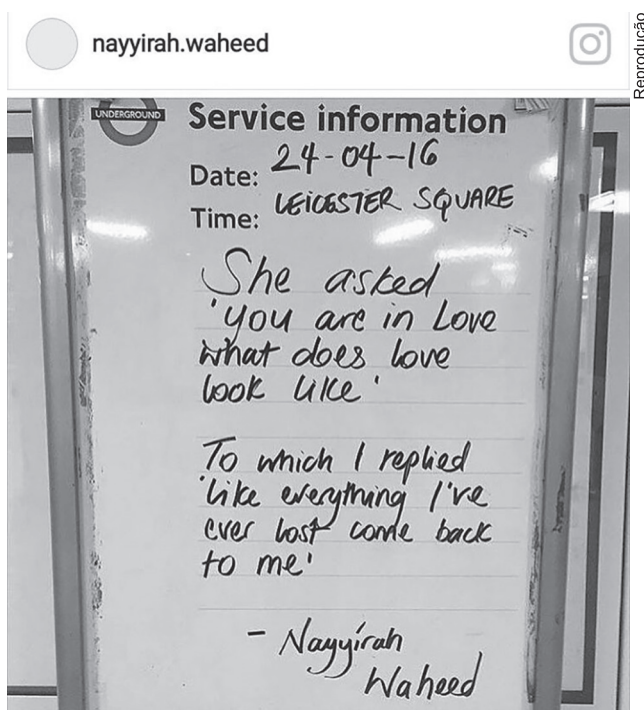 nayyirah.waheed
Reprodução
UNDERGROUND
Service information
Date: 24-04-16
Time: LEICESTER SQUARE
She asked
'you are in love
what does love
look like'
To which I replied
'like everything I've
ever lost come back
to me'
- Nayyirah
Waheed